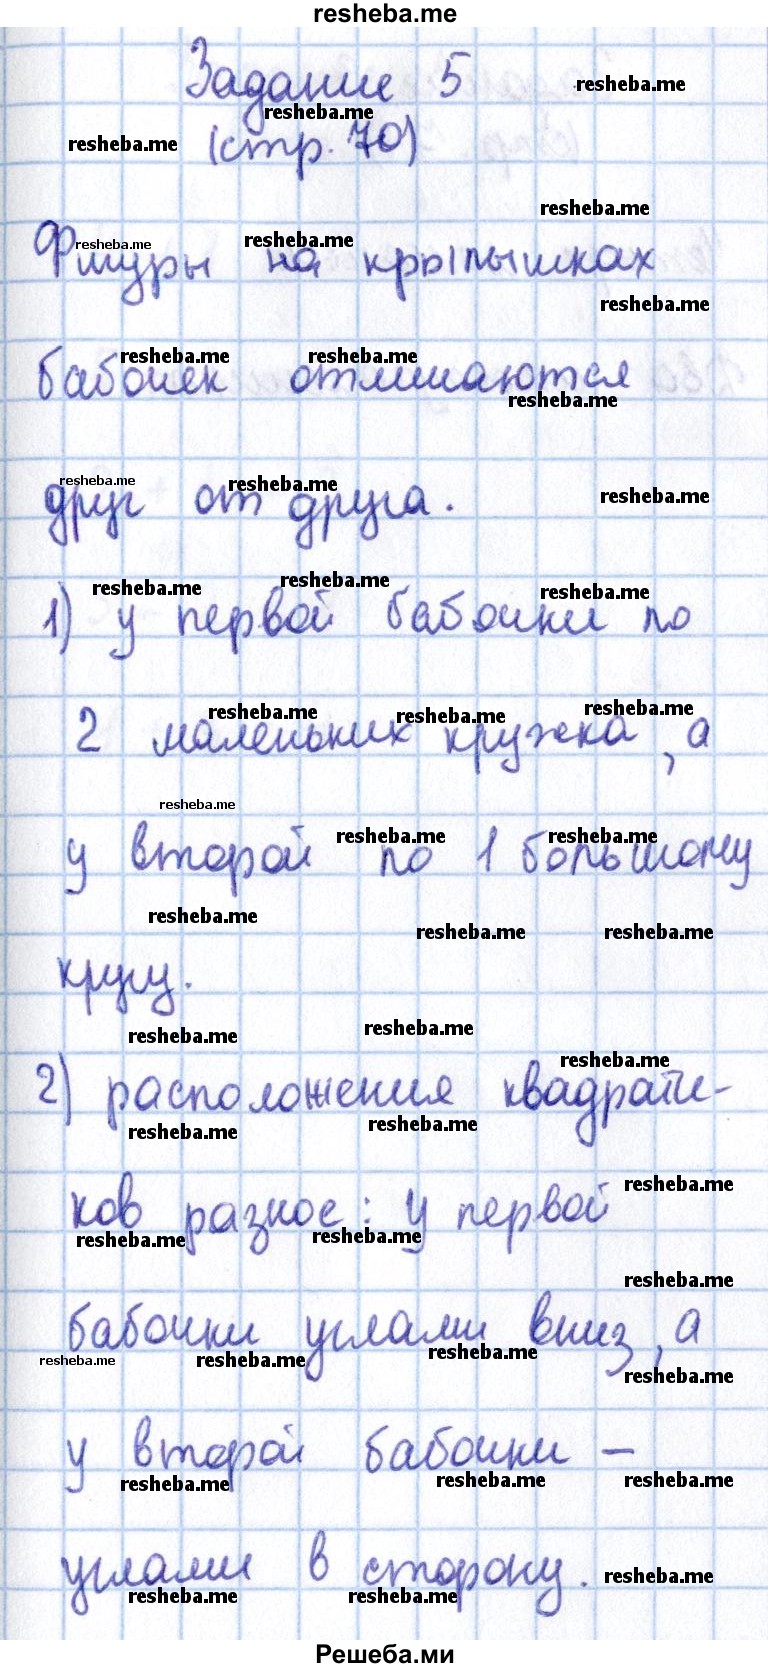 resheba.me
Задание 5
(стр. 70)
Фигуры на крылышках
бабочек отличаются
друг от друга.
1) у первой бабочки по
2 маленьких кружка, а
у второй по 1 большому
кругу.
2) расположения квадрати-
ков разное: у первой
бабочки углами вниз, а
у второй бабочки –
углами в сторону.
Решеба.ми